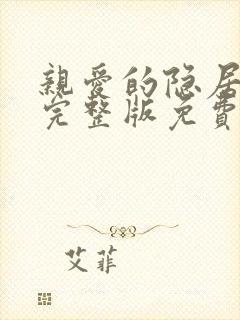 親愛的隐居
完整版免費
艾菲